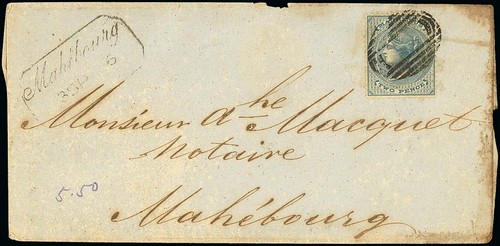 Mahébourg
6
TWO PENCE
Monsieur Ahe Macquet
Notaire
5.50
Mahébourg